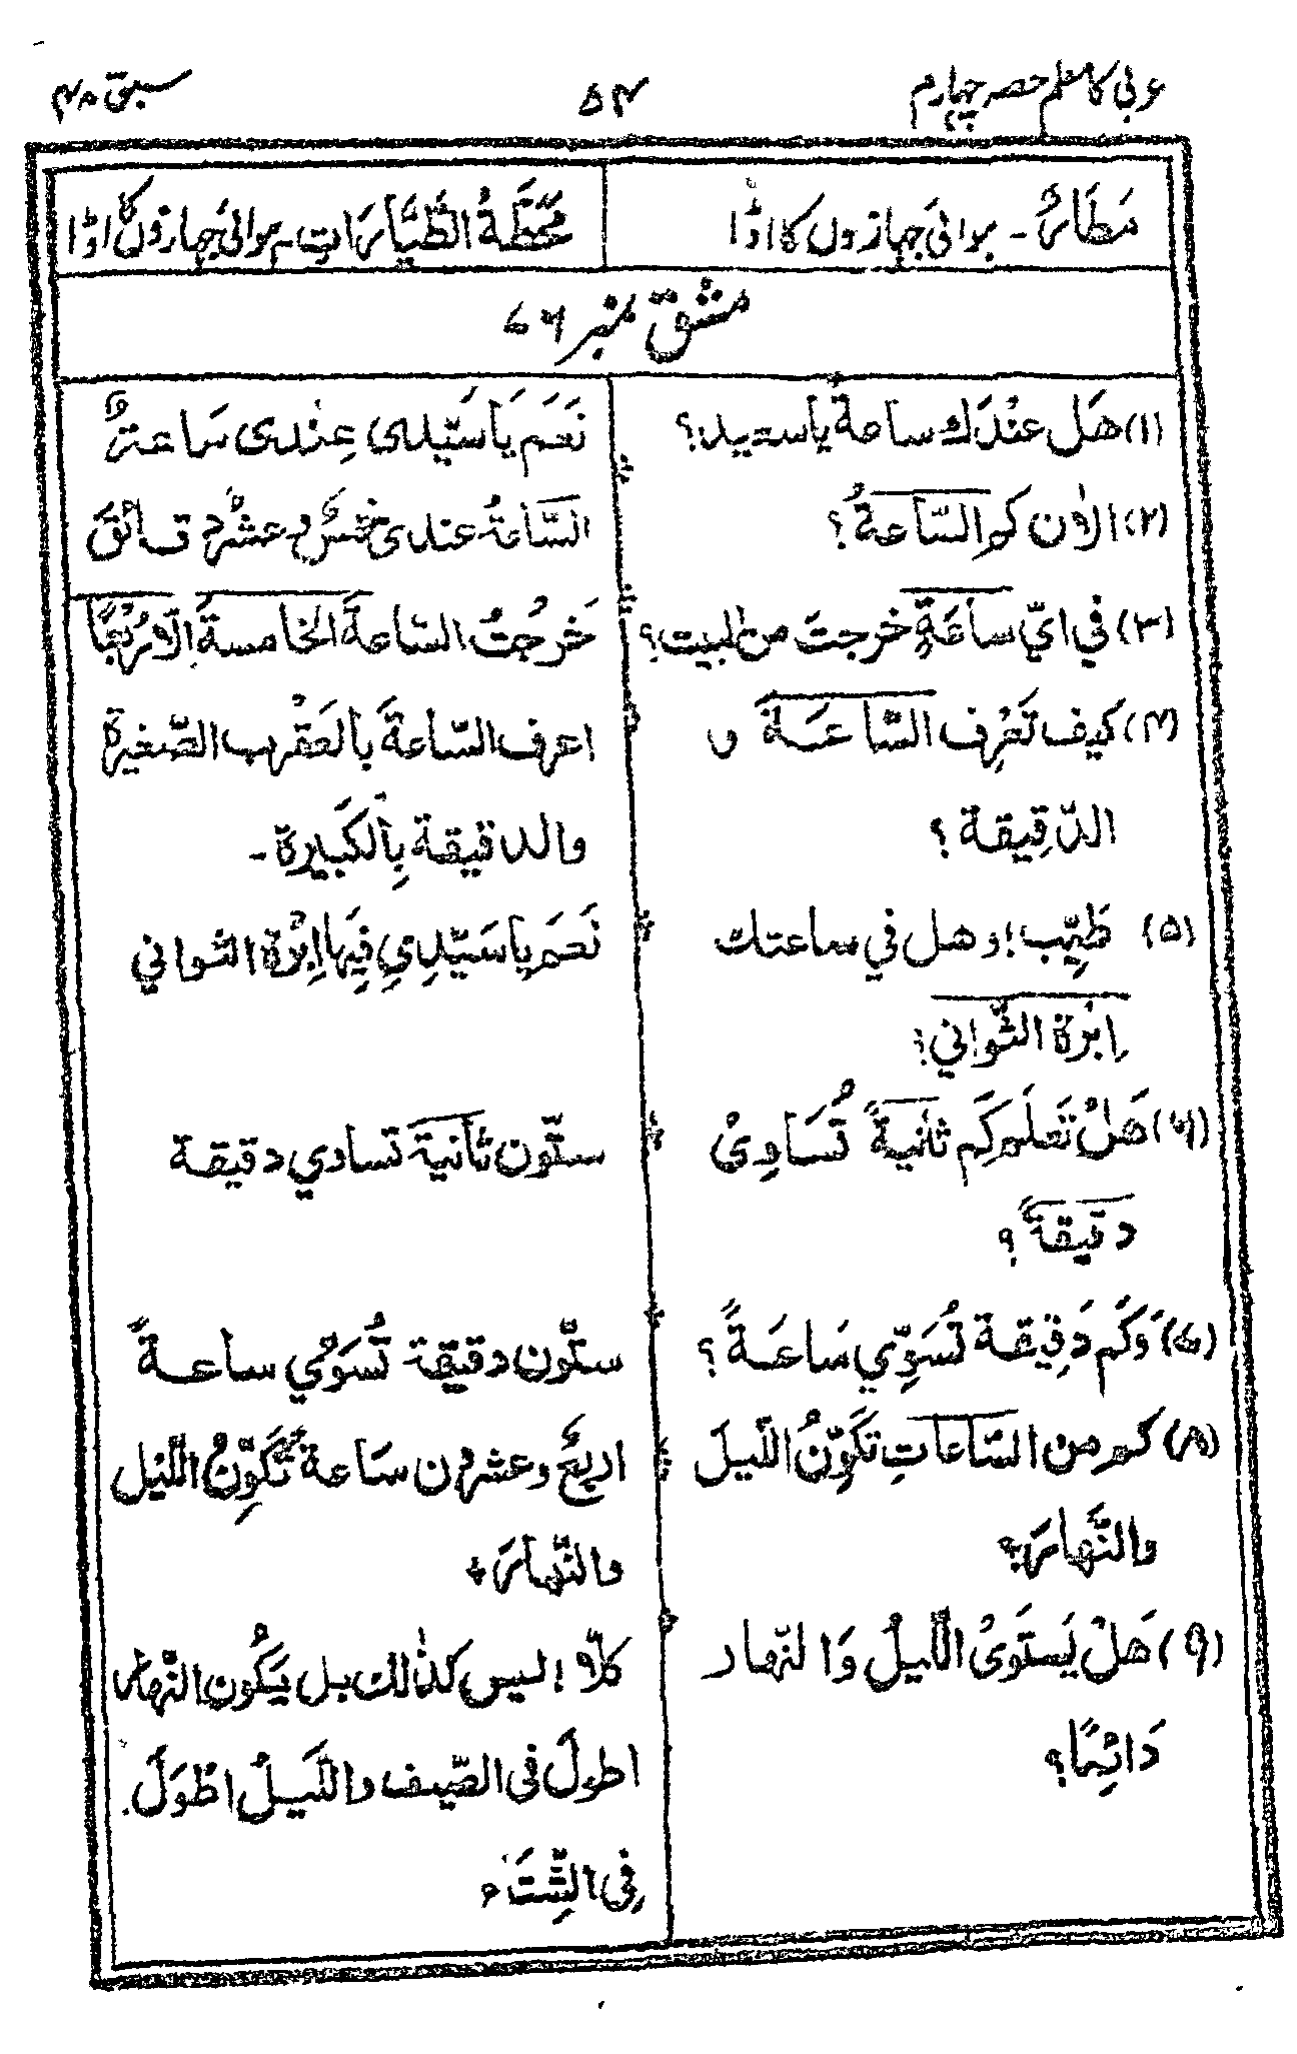 عربی کا معلم حصہ چہارم ۵۴ سبق ۴۸
مَطَارٌ۔ ہوائی جہازوں کا اڈّا مَحَطَّةُ الطَّيَّارَاتِ۔ ہوائی جہازوں کا اڈّا
مشق نمبر ۷۶
(۱) هَل عنْدَك ساعةٌ یا سیدی؟ نَعَم يَا سَيِّدِی عِنْدِی سَاعةٌ
(۲) الاٰن کم السّاعةُ؟ السّاعةُ عندی خمسٌ وعشرُ دقائقَ
(۳) في ايّ ساعَةٍ خرجتَ من البیت؟ خَرجْتُ السّاعةَ الخامسةَ اِلّا رُبْعًا
(۴) كيف تَعْرِف السَّاعَةَ و اعرف السّاعةَ بالعَقْرب الصّغيرة
الدّقِيقة؟ والدقيقة بِالْكَبِيرة۔
(۵) طَيِّب! وهل في ساعتك نَعَم يا سَيِّدِي فِيها اِبْرة الثواني
اِبْرة الثَّواني؟
(۶) هَلْ تَعلَم كَم ثانيةً تُسَاوِيْ ستّون ثانية تساوي دقيقة
دقيقةً؟
(۷) وَكَم دَقِيقة تُسَوِّي سَاعَةً؟ ستّون دقيقة تُسَوِّي ساعةً
(۸) كم من السّاعاتِ تُكَوِّنُ اللَّيلَ اربعٌ وعشرون سَاعة تُكَوِّنُ اللَّيْل
والنَّهارَ؟ والنّهارَ۔
(۹) هَلْ يَستَوِیْ اللَّيلُ وَالنّهار كلّا! ليس كذٰالك بل يَكُون النّهار
دَائِمًا؟ اطولَ فی الصّيف واللَّيلُ اطْوَلَ
فِی الشِّتَاء